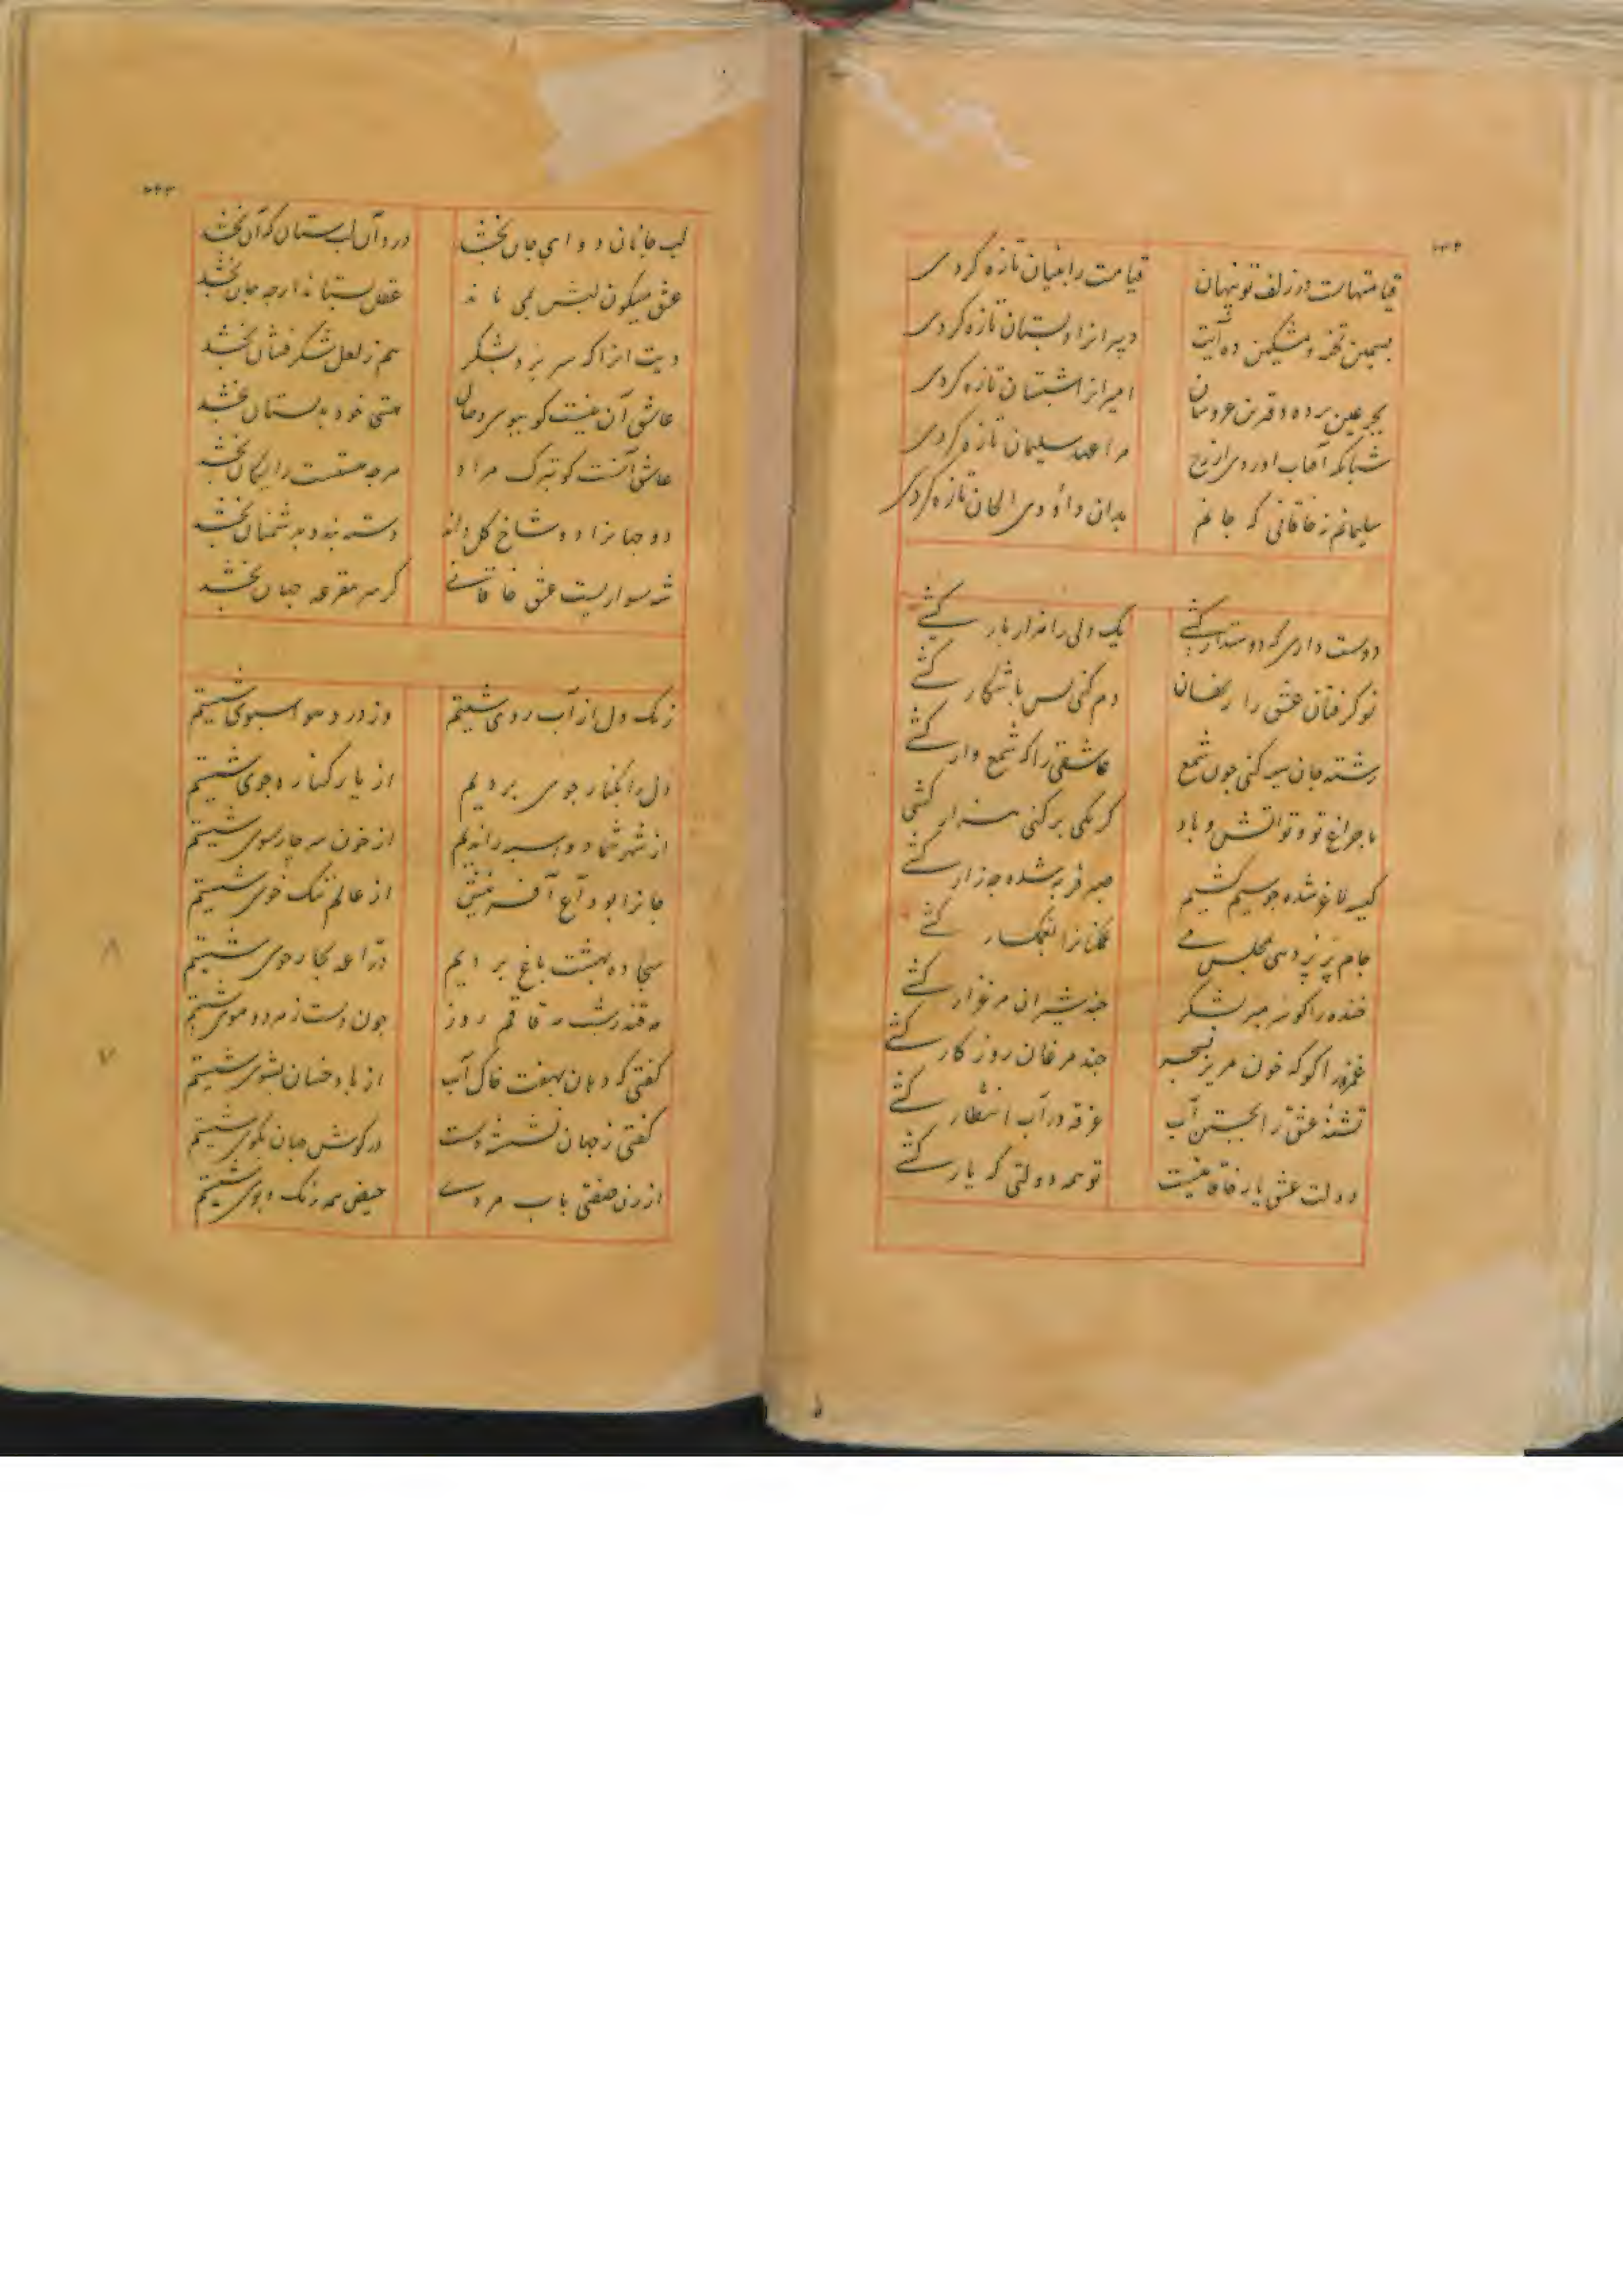 قیامتهاست در زلف تو پنهان قیامت را بفیان تازه کردی
بسیمین تخته و مشکین ده آیت دبیرانرا دبستان تازه کردی
امیرانرا شبستان تازه کردی
شبانکه آفتاب اوردی از رخ مرا عهد سلیمان تازه کردی
سلیمانم ز خاقانی که جانم بدان داؤدی الحان تازه کردی
دوست داری که دوستدار کشی یک دلی را هزار بار کشی
نوکرفتان عشق را دم کنی پس باشکار کشی
رشته جان سیه کنی چون شمع عاشقی را که شمع وار کشی
با چراغ تو و تو اتش و باد کر یکی بر کنی هزار کشی
کیسه لاغر شده چو سیم کشیم صبر فربه شده چو زار کشی
جام پر پر دهی بمجلس می کشی
خنده را کو سر مبر بشکر چند شیران مرغزار کشی
غمزه را کو که خون مریز بسحر چند مرغان روزکار کشی
تشنۀ عشق را بجستن آب غرقه در آب انتظار کشی
دولت عشق یار خاقانیست تو همه دولتی که یار کشی
لب جانان دوای جان بخشد درد آن لب ستان که آن بخشد
عشق میکون لبش بمی ماند عقل بستاند ارچه جان بخشد
دیت انرا که سر برد بشکر هم ز لعل شکر فشان بخشد
عاشق آن نیست کو ببوی وصال هستی خود بدلستان بخشد
عاشق آنست کو بترک مراد هرچه هستست رایکان بخشد
دو جهانرا دو شاخ کل داند دسته بندد بدشمنان بخشد
شه سواریست عشق خاقانی کر سر مقرعه جهان بخشد
زنک دل از آب روی شستیم وز درد هوا سبوی شستیم
دل را بکنار جوی بردیم از یار کناره جوی شستیم
از شهر شما دو اسبه راندیم از خون سر چارسوی شستیم
جانرا بوداع آفرینش از عالم تنک خوی شستیم
سجاده بهشت باغ بردیم دراعه بجارجوی شستیم
چون دست ز مرد و موی شستیم
کفتی که دهان بهفت خاک آب از یاد خسان بشوی شستیم
کفتی ز جهان نشسته دست در کوش جهان بکوی شستیم
از زن صفتی باب مردی حیض همه رنک و بوی شستیم